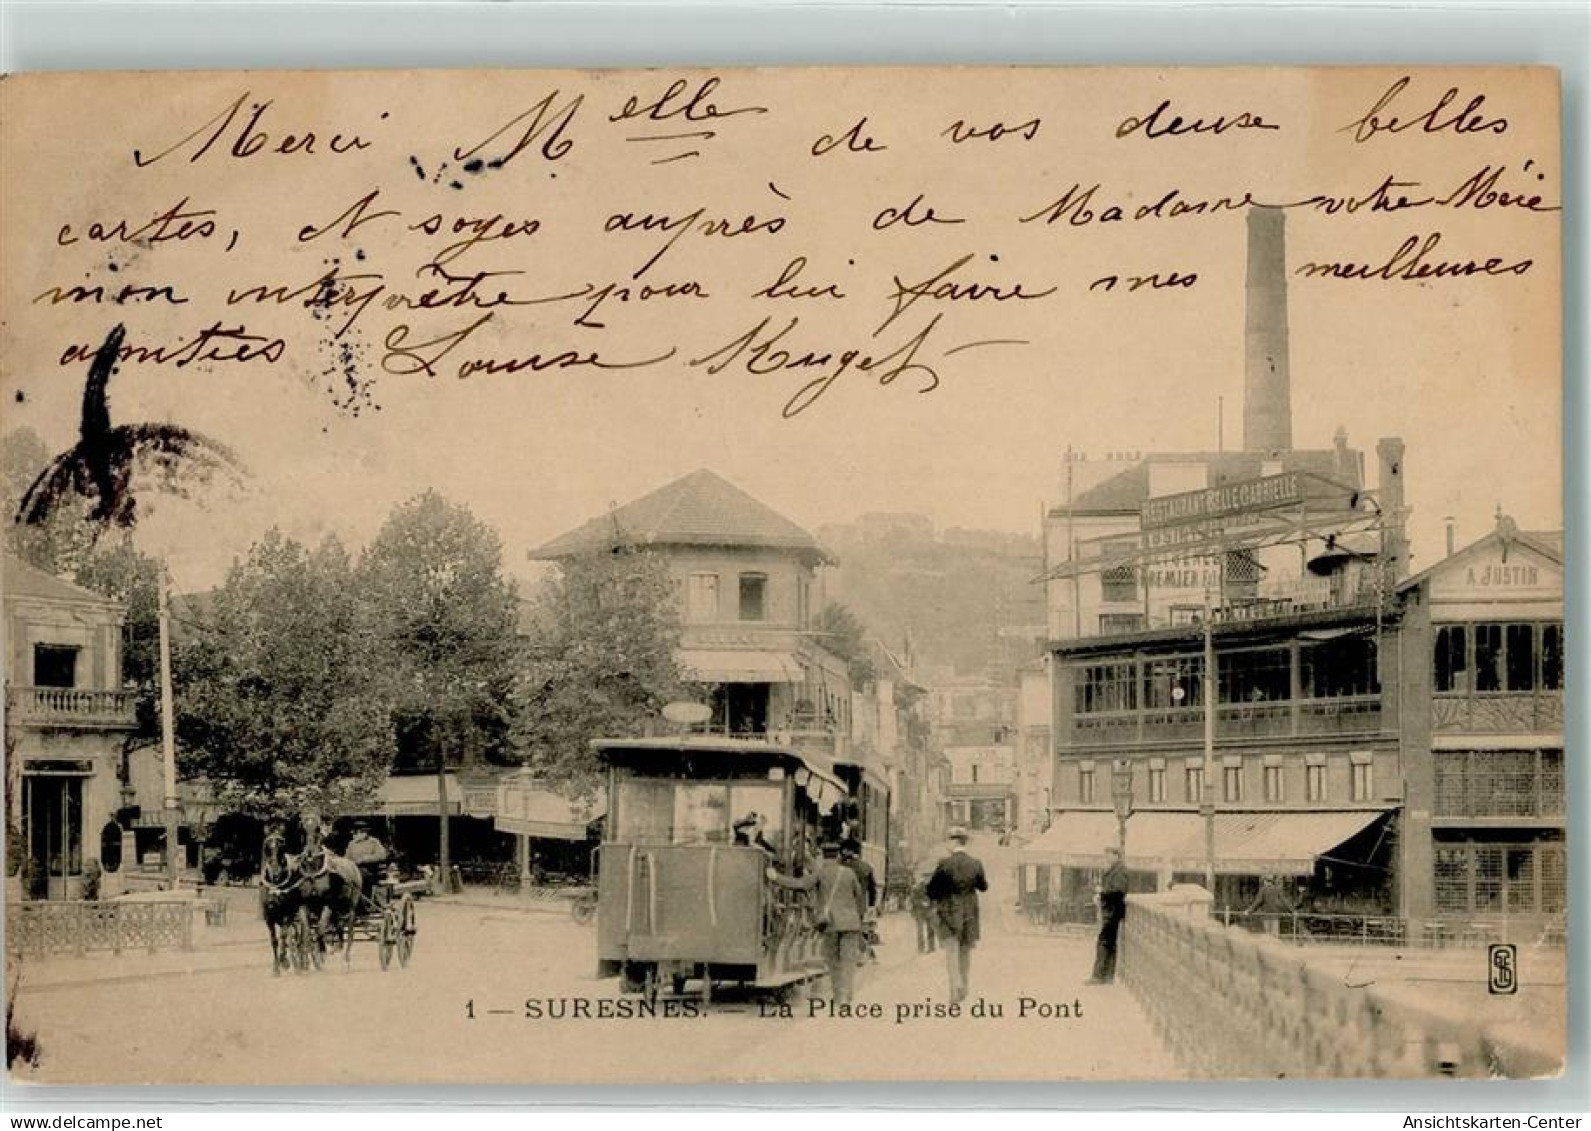 Merci M<sup>elle</sup> de vos deux belles
cartes, et soyez auprès de Madame votre Mère
mon interprète pour lui faire mes meilleures
amitiés Louise
RESTAURANT BELLE GABRIELLE
PREMIER
A. JUSTIN
1 — SURESNES. — La Place prise du Pont
Ansichtskarten-Center